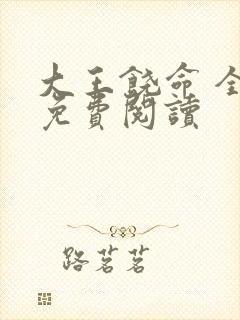 大王饒命 全
免費閱讀
路茗茗